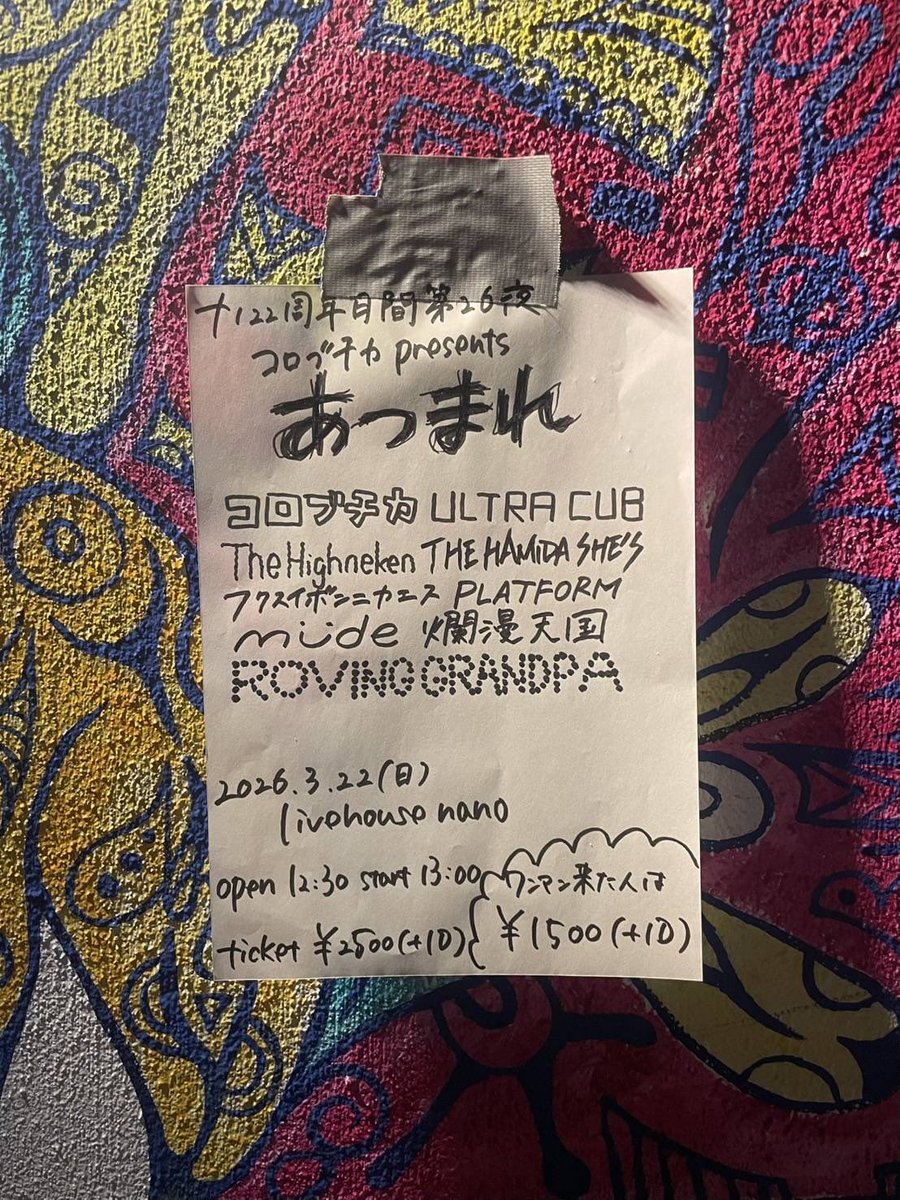 ナノ22周年月間第26夜
コロブチカ presents
あつまれ
コロブチカ ULTRA CUB
The Highneken THE HAMIDA SHE'S
フクスイボンニカエス PLATFORM
müde 爛漫天国
ROVING GRANDPA
2026.3.22(日)
livehouse nano
open 12:30 start 13:00
ワンマン来た人は
ticket ¥2500(+1D)
¥1500(+1D)